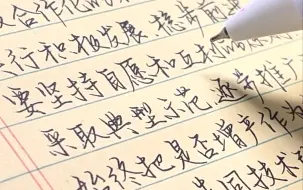 合作化
行和积极发展 稳步前进
要坚持自愿和互利
采取典型示范 逐步推广
始终把是否增产作为
同技术